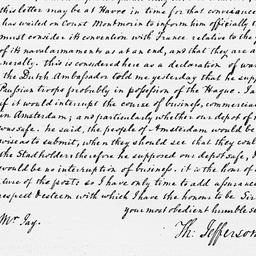 this letter may be at Havre in time for that conveiance
has waited on Count Montmorin to inform him officially t
must consider it's convention with France relative to the
of it's naval armaments as at an end, and that they are a
nerally. this is considered here as a declaration of wa
the Dutch Ambassador told me yesterday that he sup
Prussian troops probably in possession of the Hague. I a
if it would interrupt the course of business, commercia
in Amsterdam; and particularly whether our depot of
was safe. he said, the people of Amsterdam would be
wise as to submit, when they should see that they coul
the Stadholder: therefore he supposed our depot safe, &
would be no interruption of business. it is the hour of
ture of the post: so I have only time to add assurance
respect & esteem with which I have the honor to be Sir
your most obedient humble se
Mr Jay.
Th: Jefferson